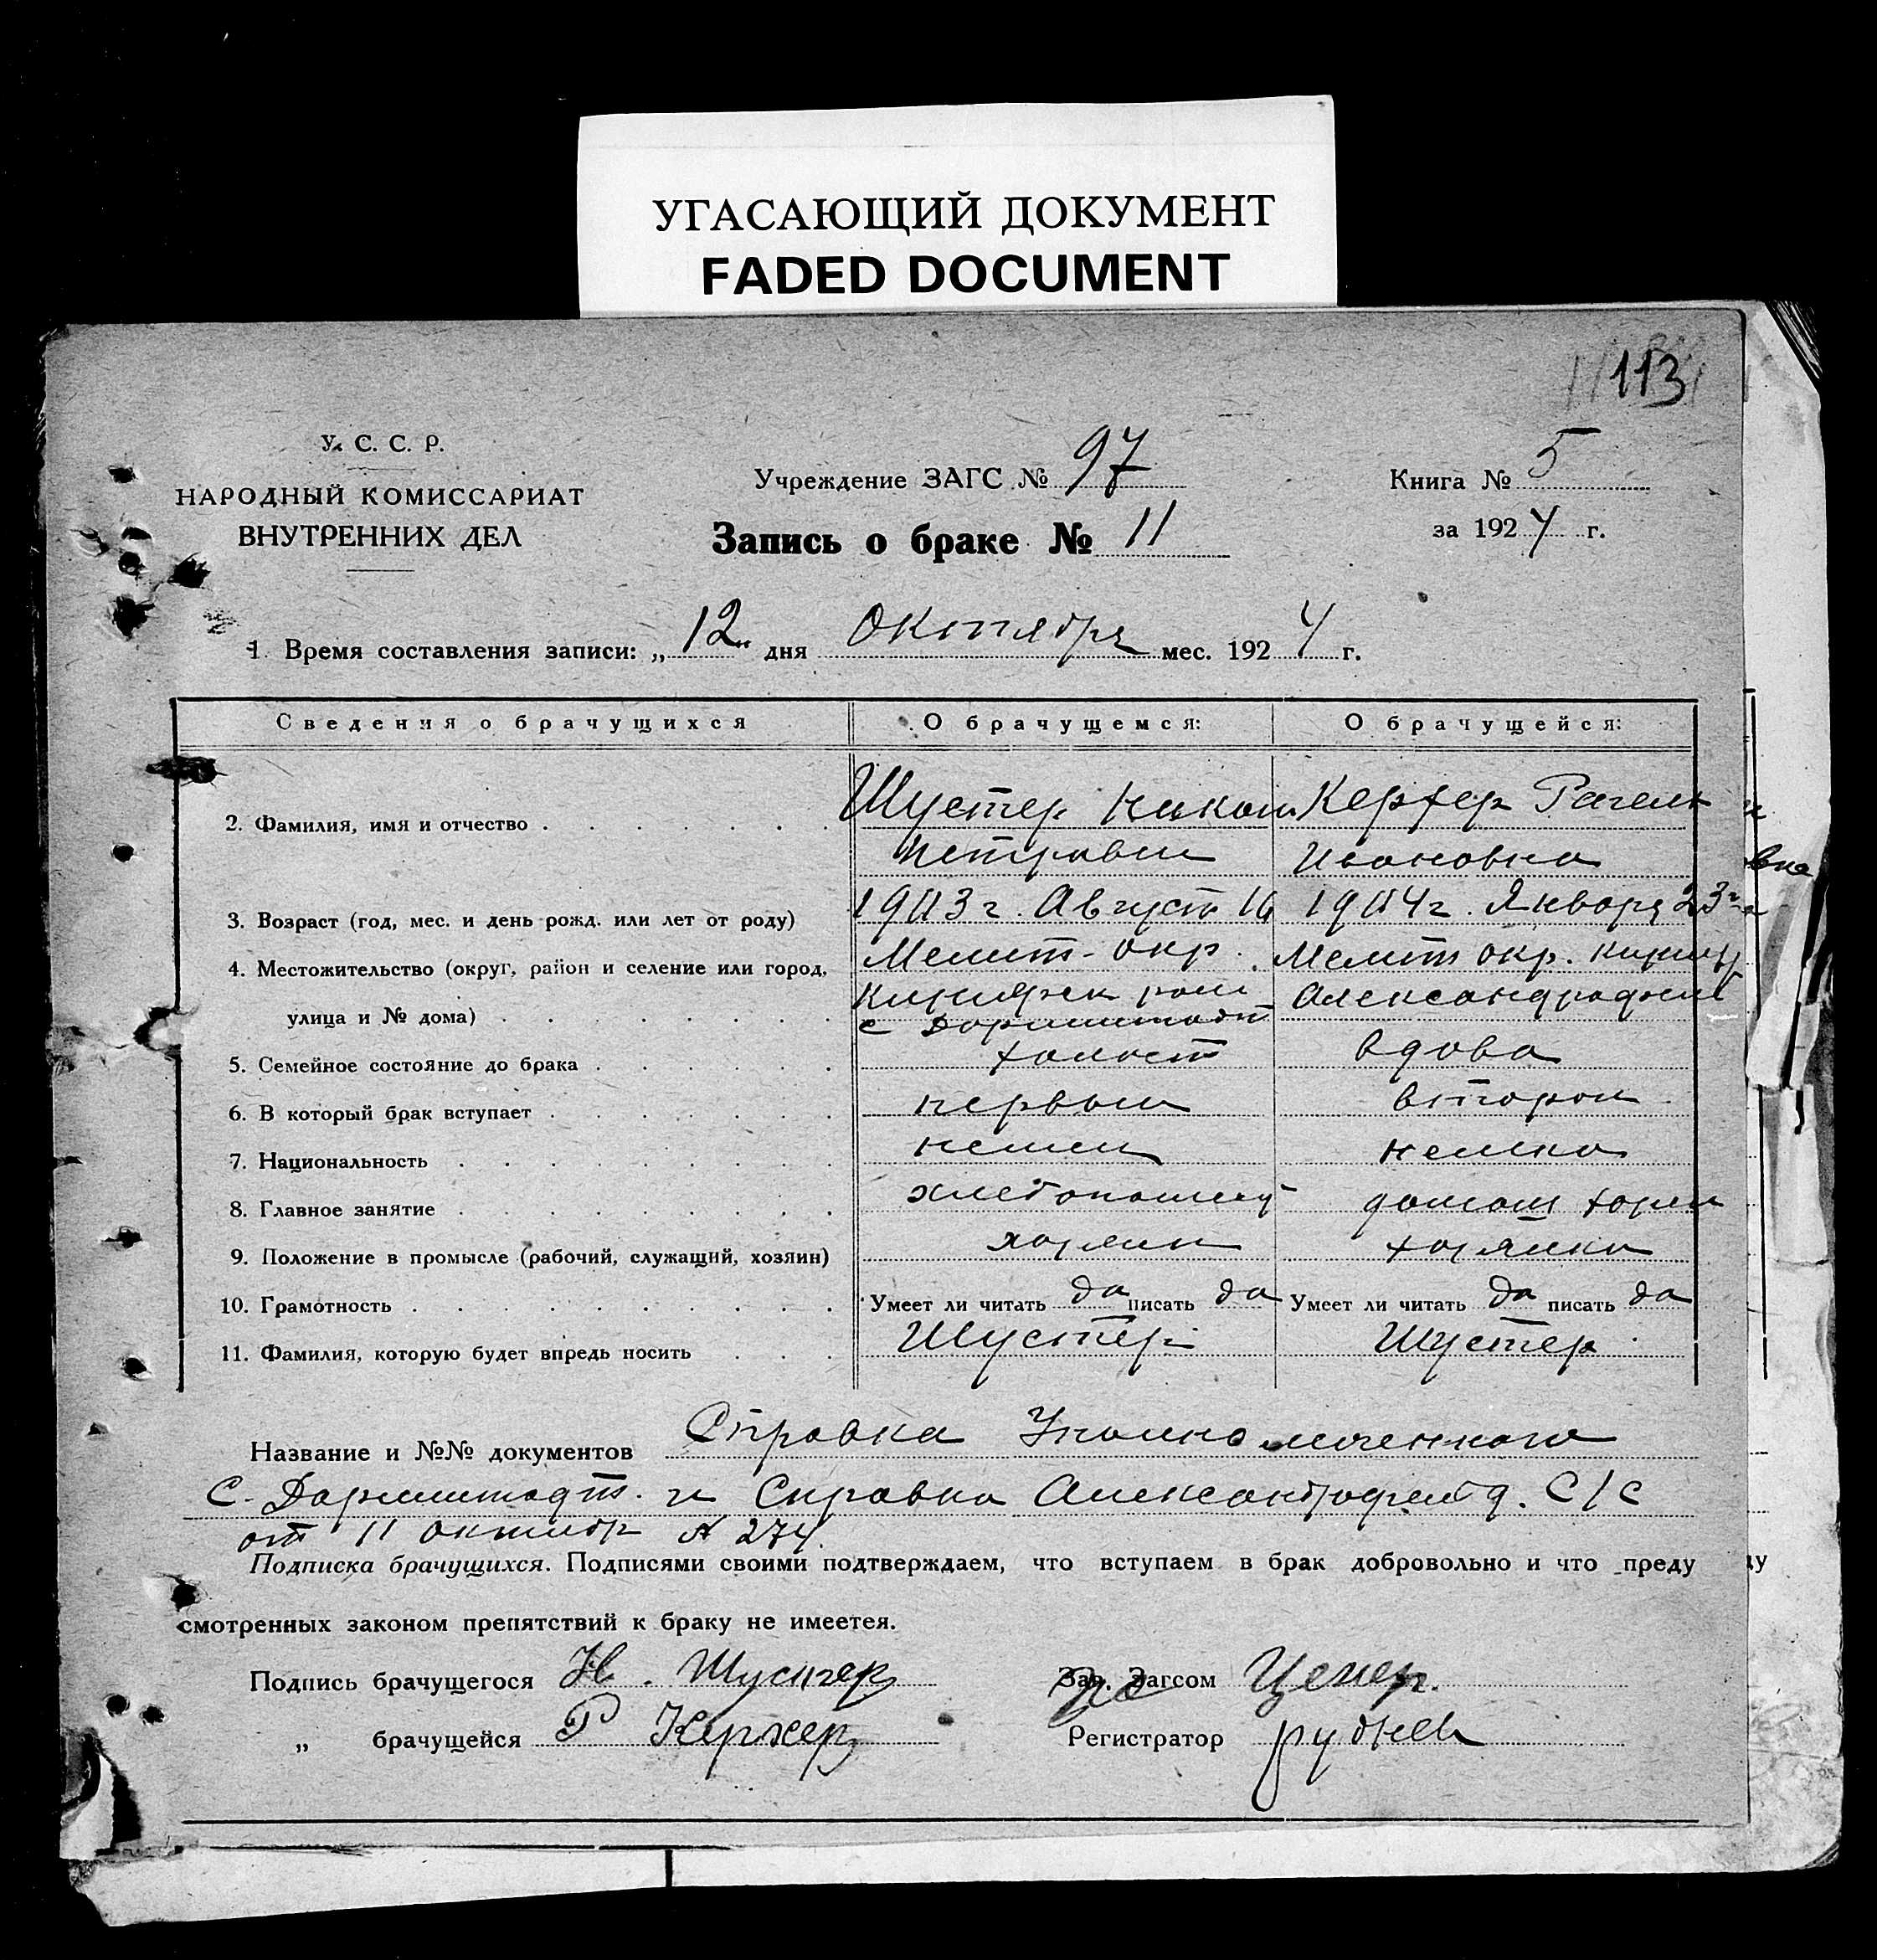 УГАСАЮЩИЙ ДОКУМЕНТ
FADED DOCUMENT
113
У. С. С. Р.
НАРОДНЫЙ КОМИССАРИАТ
ВНУТРЕННИХ ДЕЛ
Учреждение ЗАГС № 97
Запись о браке № 11
Книга № 5
за 1924 г.
1. Время составления записи: „12" дня Октября мес. 1924 г.
Сведения о брачущихся О брачущемся: О брачущейся:
2. Фамилия, имя и отчество Шустер Керхер Рагель
Петрович Ивановна
3. Возраст (год, мес. и день рожд. или лет от роду) 1903 г. Август 16 1904 г. Января 23
4. Местожительство (округ, район и селение или город, Мелит. окр. Мелит окр.
улица и № дома)
с Дармштадт
5. Семейное состояние до брака холост вдова
6. В который брак вступает первый второй
7. Национальность немец немка
8. Главное занятие хлебопашец домаш хозяй
9. Положение в промысле (рабочий, служащий, хозяин) хозяин хозяйка
10. Грамотность Умеет ли читать да писать да Умеет ли читать да писать да
11. Фамилия, которую будет впредь носить Шустер Шустер
Название и №№ документов Справка Уполномоченного
с. Дармштадт. и Справка С/С
от 11 октябр № 274.
Подписка брачущихся. Подписями своими подтверждаем, что вступаем в брак добровольно и что преду
смотренных законом препятствий к браку не имеется.
Подпись брачущегося Н. Шустер Зав. Загсом
„ брачущейся Р Керхер Регистратор